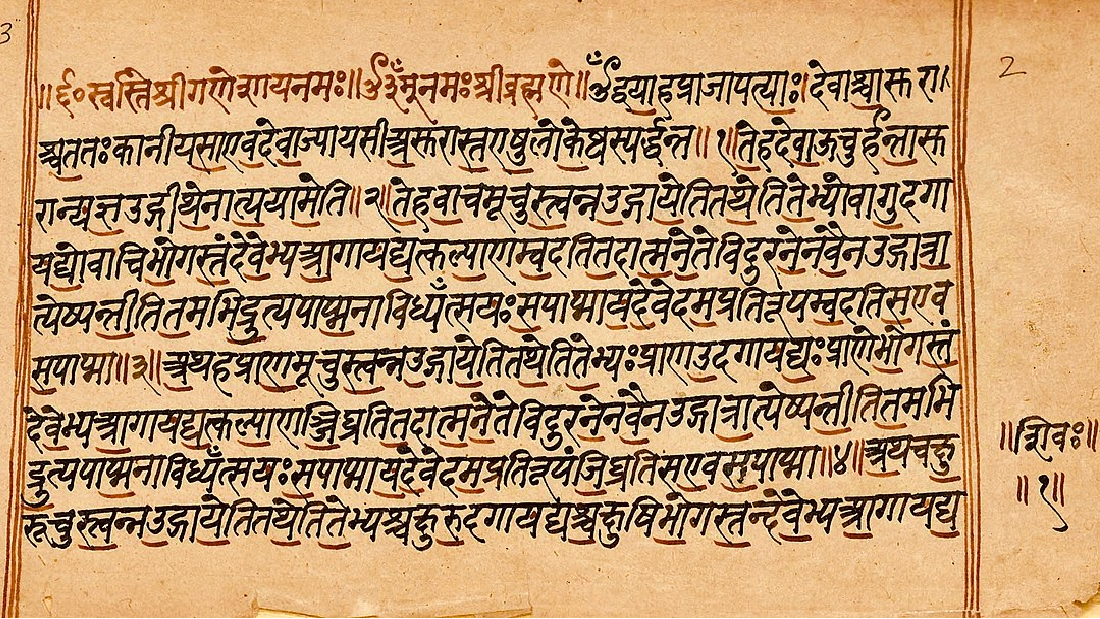 3
2
॥ ६० स्वस्ति श्रीगणेशाय नमः ॥ ॐ नमः श्रीब्रह्मणे ॥ द्वया ह प्राजापत्याः । देवाश्चासुरा
श्च ततः कानीयसा एव देवा ज्यायसा असुरास्त एषु लोकेष्वस्पर्द्धन्त ॥ १ ॥ ते ह देवा ऊचुर्हन्तासु
रान्यज्ञ उद्गीथेनात्ययामेति ॥ २ ॥ ते ह वाचमूचुस्त्वन्न उद्गायेति तथेति तेभ्यो वागुदगा
यद्यो वाचि भोगस्तं देवेभ्य आगायद्यत्कल्याणम्वदति तदात्मने ते विदुरनेन वै न उद्गात्रा
त्येष्यन्तीति तमभिद्रुत्य पाप्मनाविध्यँत्स यः स पाप्मा यदेवेदमप्रतिरूपम्वदति स एव
स पाप्मा ॥ ३ ॥ अथ ह प्राणमूचुस्त्वन्न उद्गायेति तथेति तेभ्यः प्राण उदगायद्यः प्राणे भोगस्तं
देवेभ्य आगायद्यत्कल्याणञ्जिघ्रति तदात्मने ते विदुरनेन वै न उद्गात्रात्येष्यन्तीति तमभि
द्रुत्य पाप्मनाविध्यँत्स यः स पाप्मा यदेवेदमप्रतिरूपं जिघ्रति स एव स पाप्मा ॥ ४ ॥ अथ चक्षु
रूचुस्त्वन्न उद्गायेति तथेति तेभ्यश्चक्षुरुदगायद्यश्चक्षुषि भोगस्तन्देवेभ्य आगायद्य
॥ शिवः ॥
॥ १ ॥